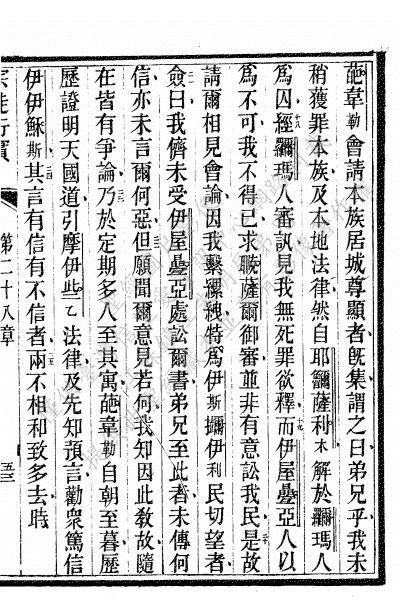 葩韋勒會請本族居城尊顯者旣集謂之曰弟兄乎我未
稍獲罪本族及本地法律然自耶薩利木解於瑪人
十八
爲囚經瑪人審訊見我無死罪欲釋而伊屋疊亞人以
爲不可我不得已求薩爾御審並非有意訟我民是故
請爾相見會論因我繫縲絏特爲伊斯伊利民切望者
僉曰我儕未受伊屋疊亞處訟爾書弟兄至此者未傳何
信亦未言爾何惡但願聞爾意見若何我知因此敎故隨
在皆有爭論乃於定期多人至其寓葩韋勒自朝至暮歷
歷證明天國道引摩伊些乙法律及先知預言勸衆篤信
伊伊穌斯其言有信有不信者兩不相和致多去時
宗徒行實 第二十八章 五三